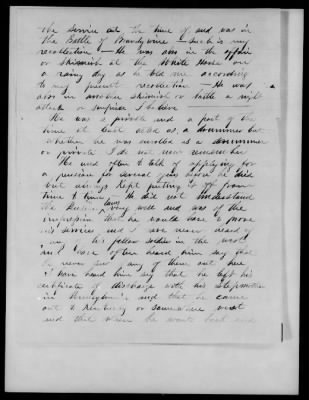 the service at the time of and was in
the Battle of Brandywine - Such is my
recollection - He was also in the affair
or skirmish at the White Horse on
a rainy day as he told me according
to my present recollection - He was
also in another skirmish or battle a night
attack or surprise I believe
He was a private and a part of the
time at least acted as a drummer but
whether he was enrolled as a drummer
or private I do not now remember
He used often to talk of applying for
a pension for several years before he died
but always kept putting it off from
time to time. He did not understand
the Pension laws well and was of the
impression that he would have to prove
his services and I never heard of
any his fellow soldier in the west
and have often heard him say that
he never saw any of them out here
I have heard him say that he left his
certificate of discharge with his stepmother
in Pennsylvania and that he came
out to or somewhere west
and that when he went back and